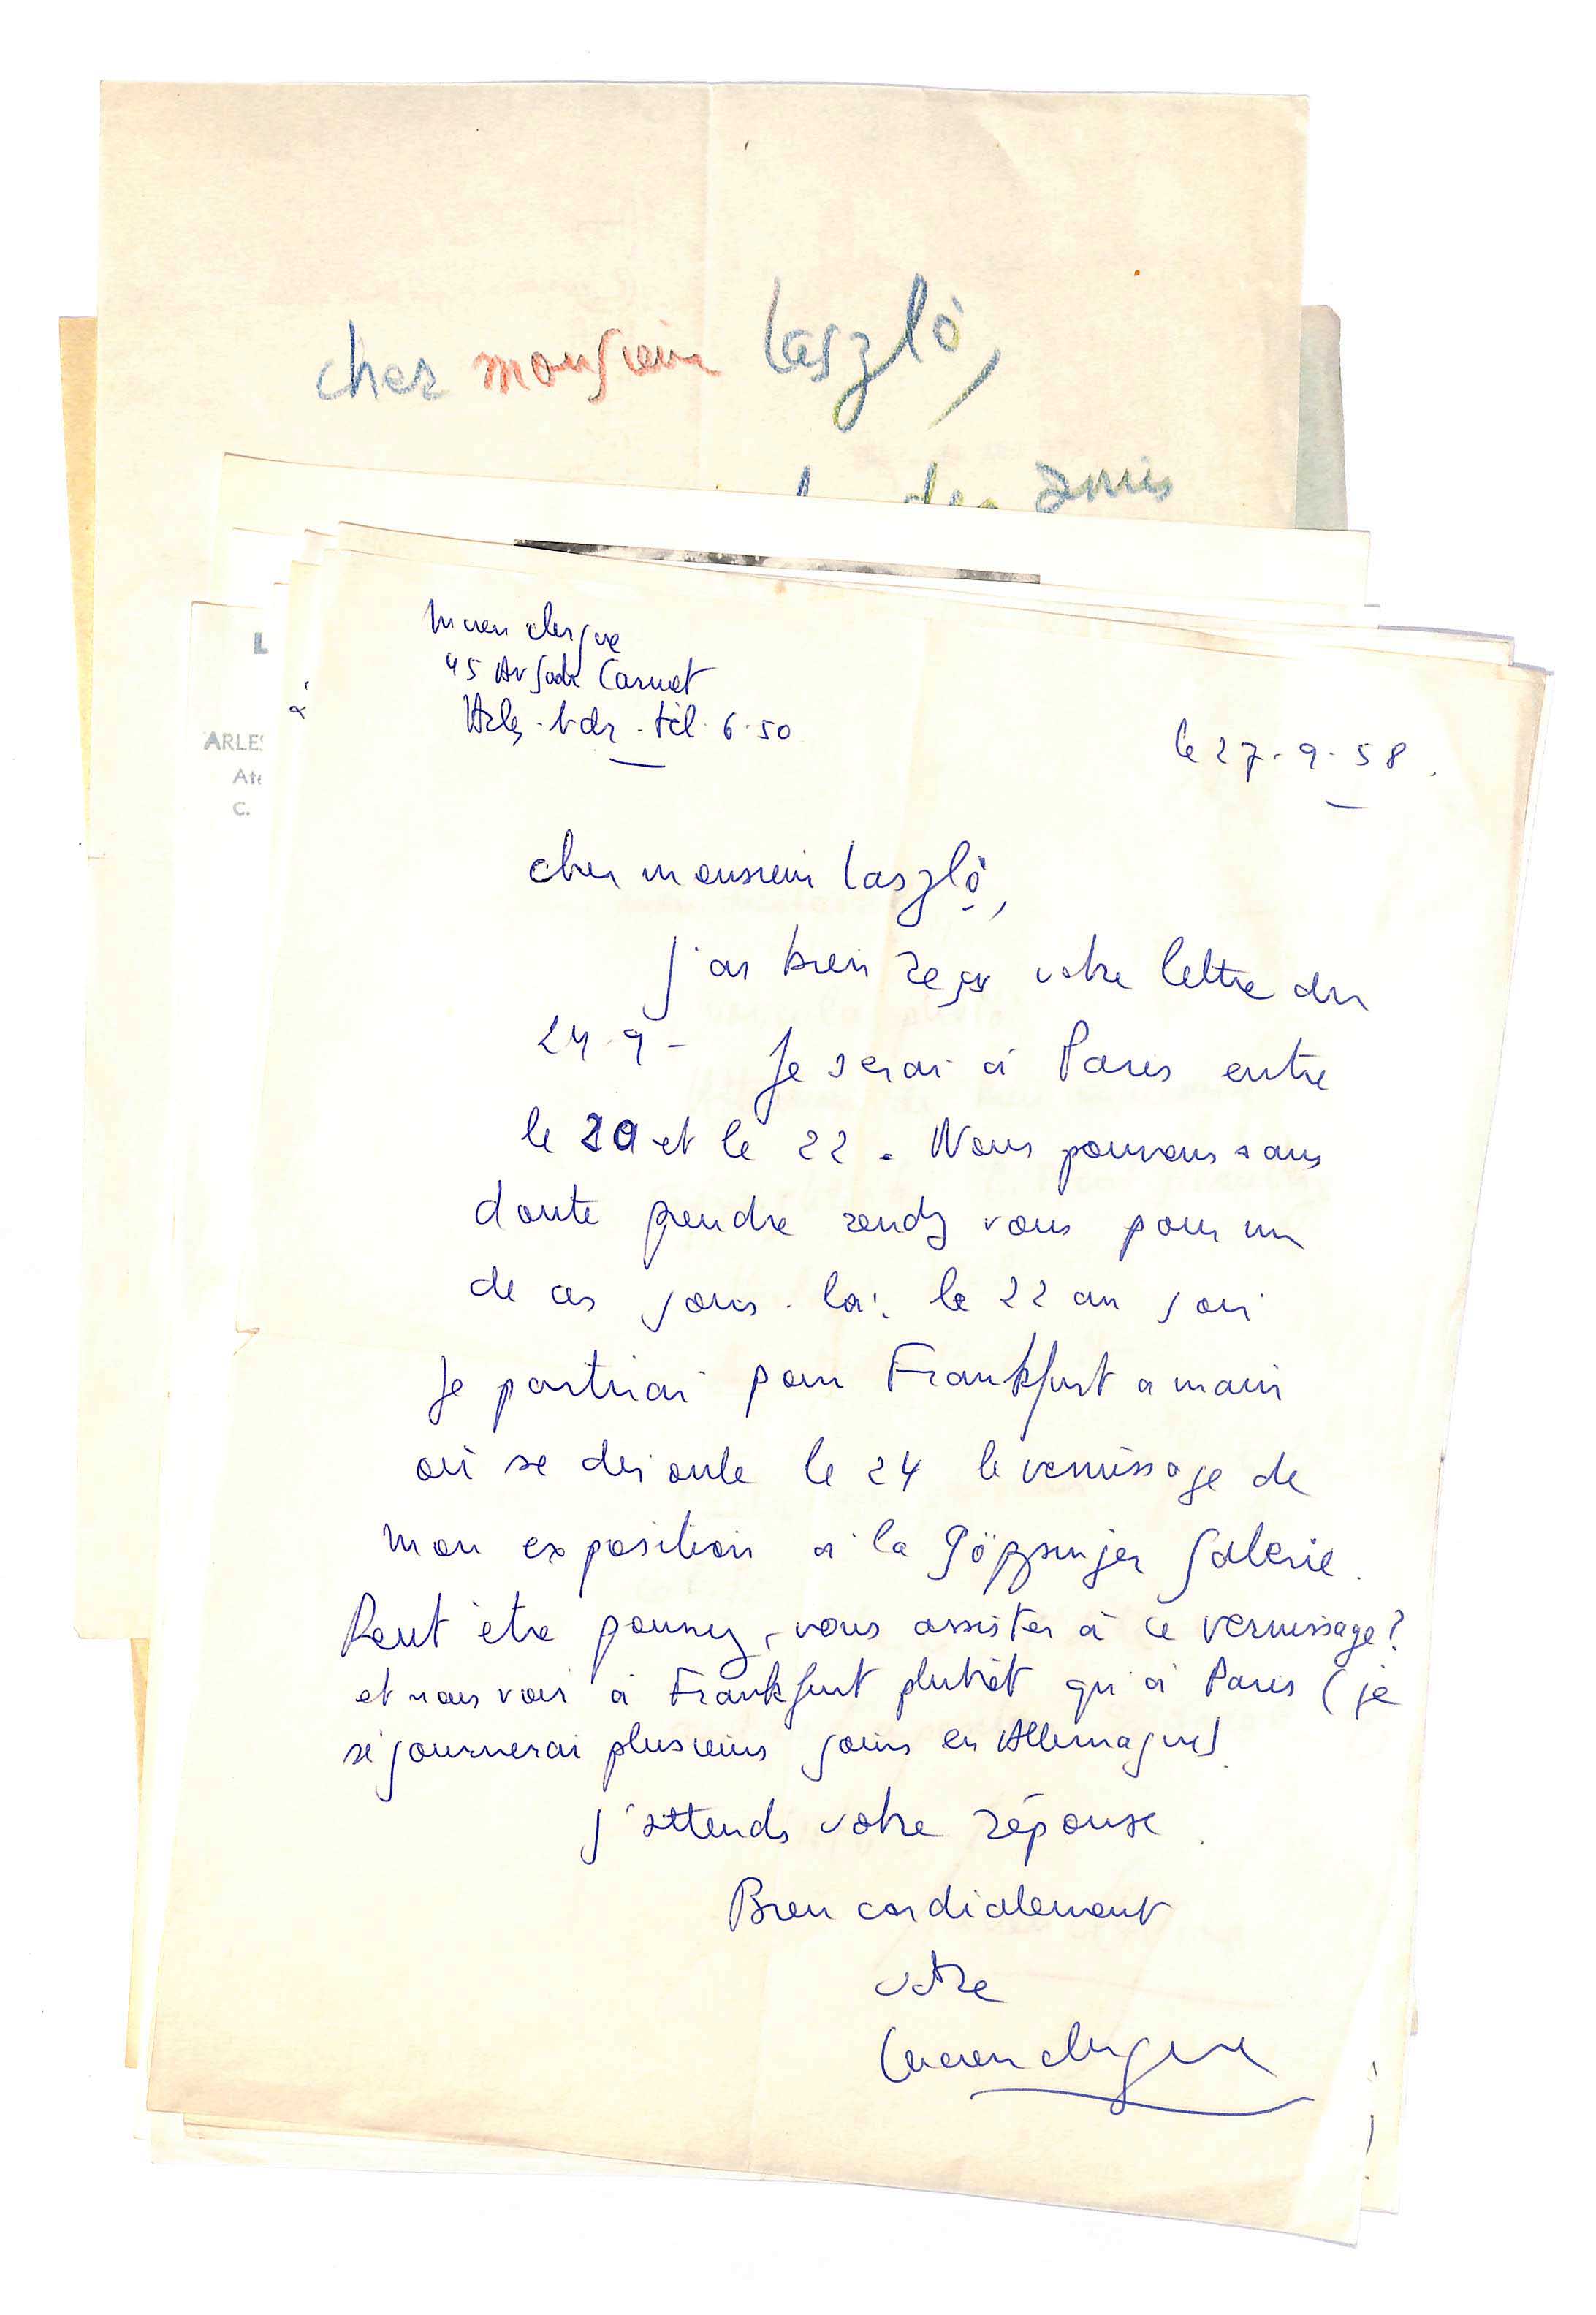 cher monsieur laszlò,
des amis
L
ARLES
Ate
C.
à
lucien clergue
45 Av Sadi Carnot
Arles. b. dr. tél. 6.50
le 27.9.58.
cher monsieur laszlò,
j'ai bien reçu votre lettre du
24.9 - Je serai à Paris entre
le 20 et le 22. Nous pouvons sans
doute prendre rendez vous pour un
de ces jours. là: le 22 au soir
je partirai pour Frankfurt a main
où se déroule le 24 le vernissage de
mon exposition à la Göppinger Galerie.
Peut être pourrez-vous assister à ce vernissage?
et nous voir à Frankfurt plutôt qu'à Paris (je
séjournerai plusieurs jours en Allemagne).
J'attends votre réponse.
Bien cordialement
votre
lucien clergue